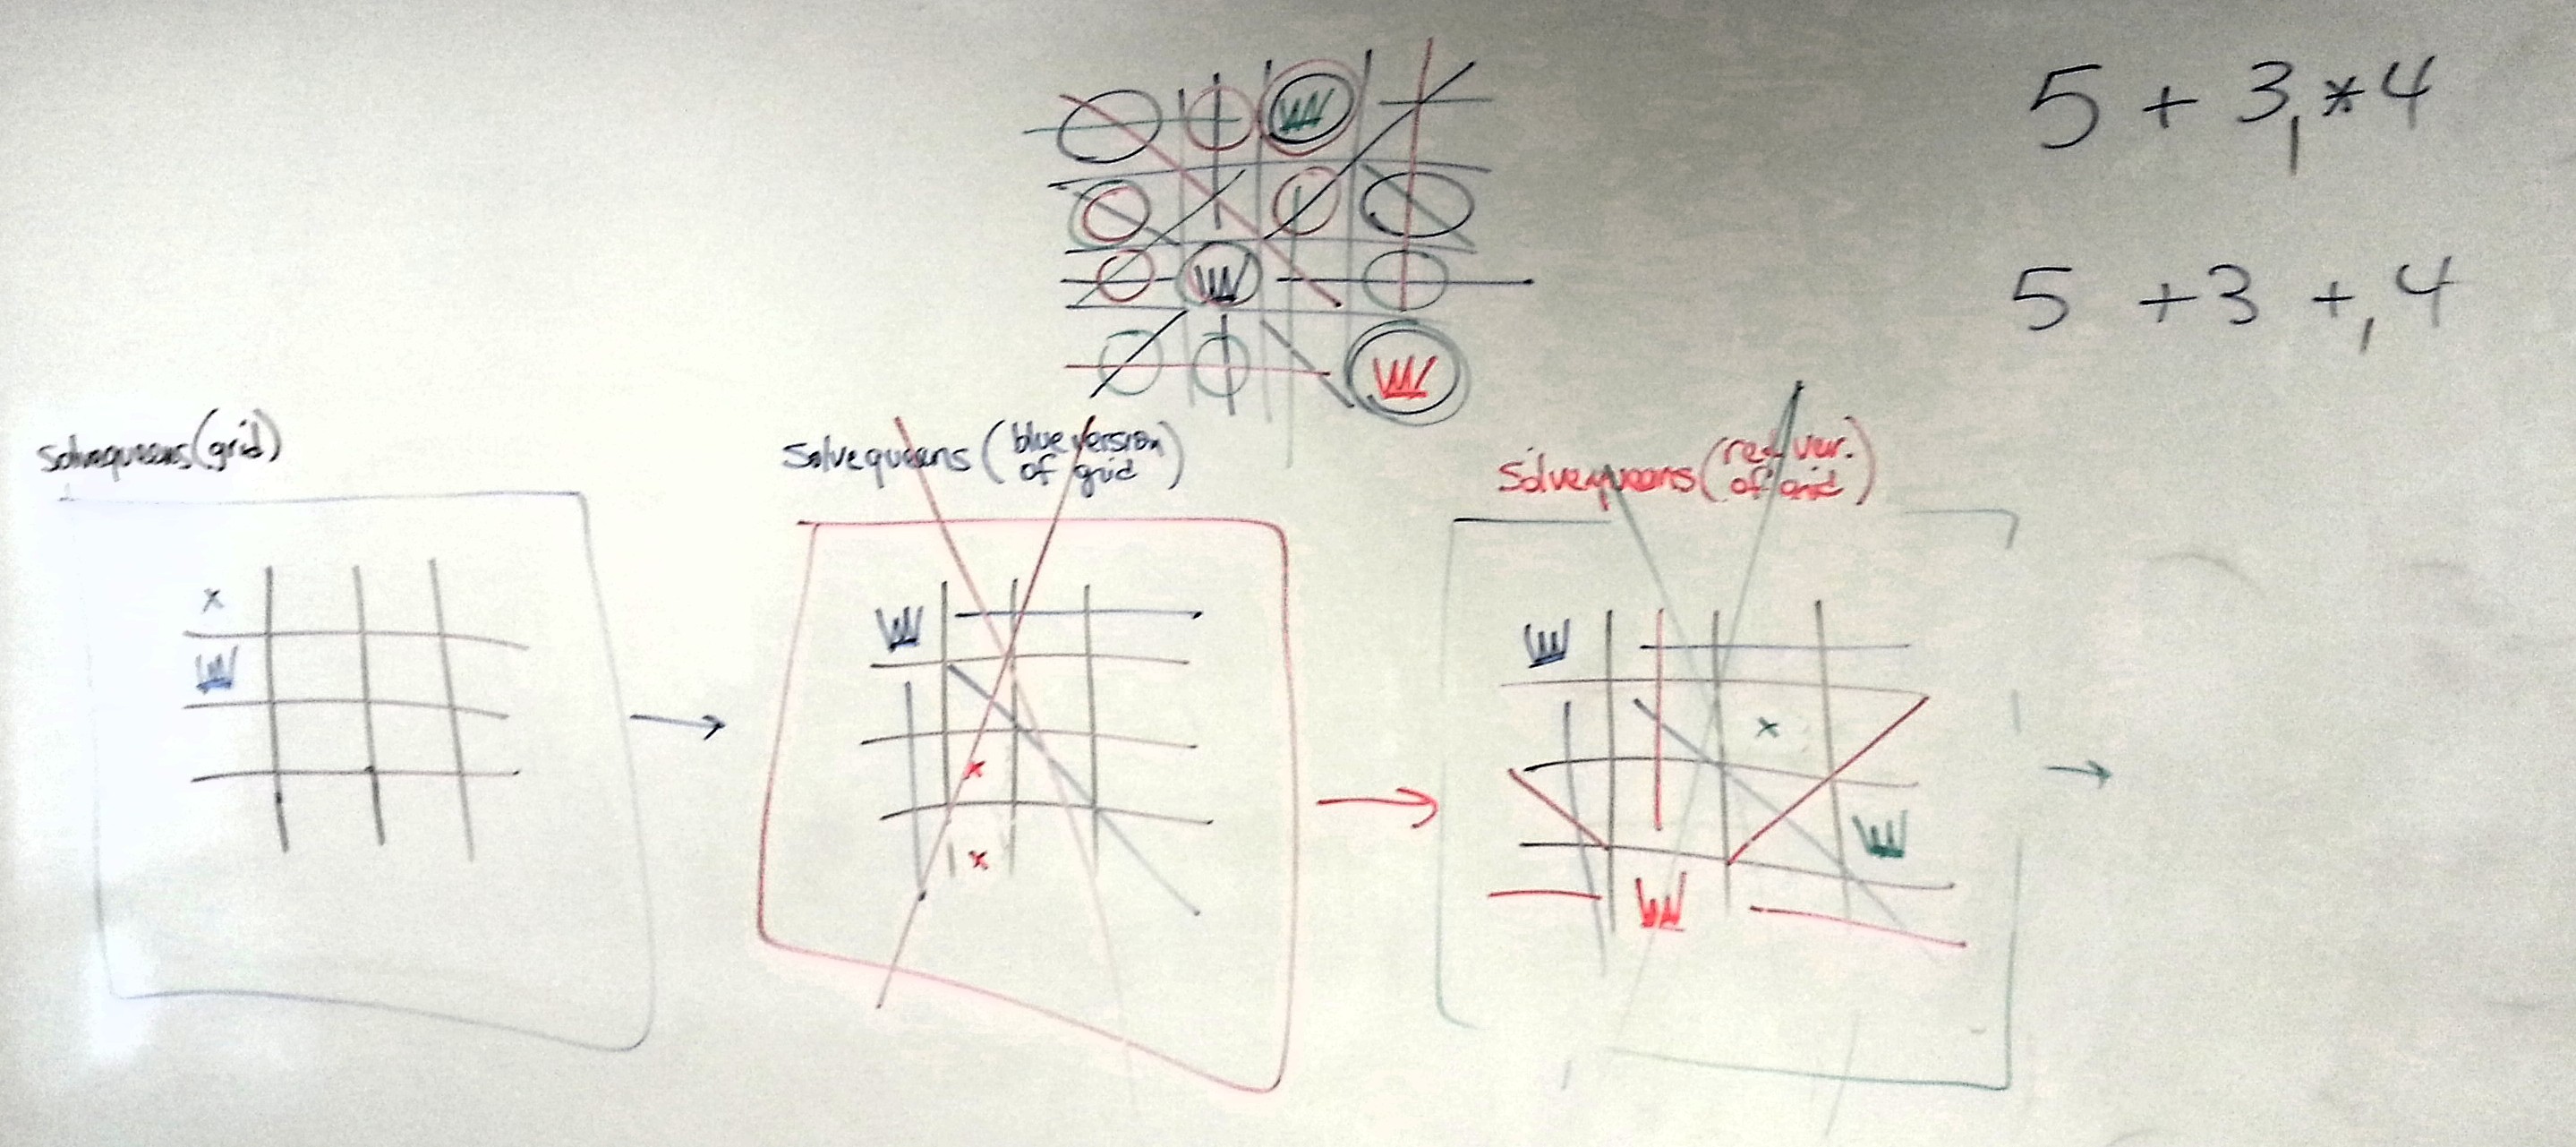 5 + 3, * 4
5 + 3 +, 4
solvequeens(grid)
x
solvequeens (blue version
of grid)
x
x
solvequeens (red ver.
of grid)
x